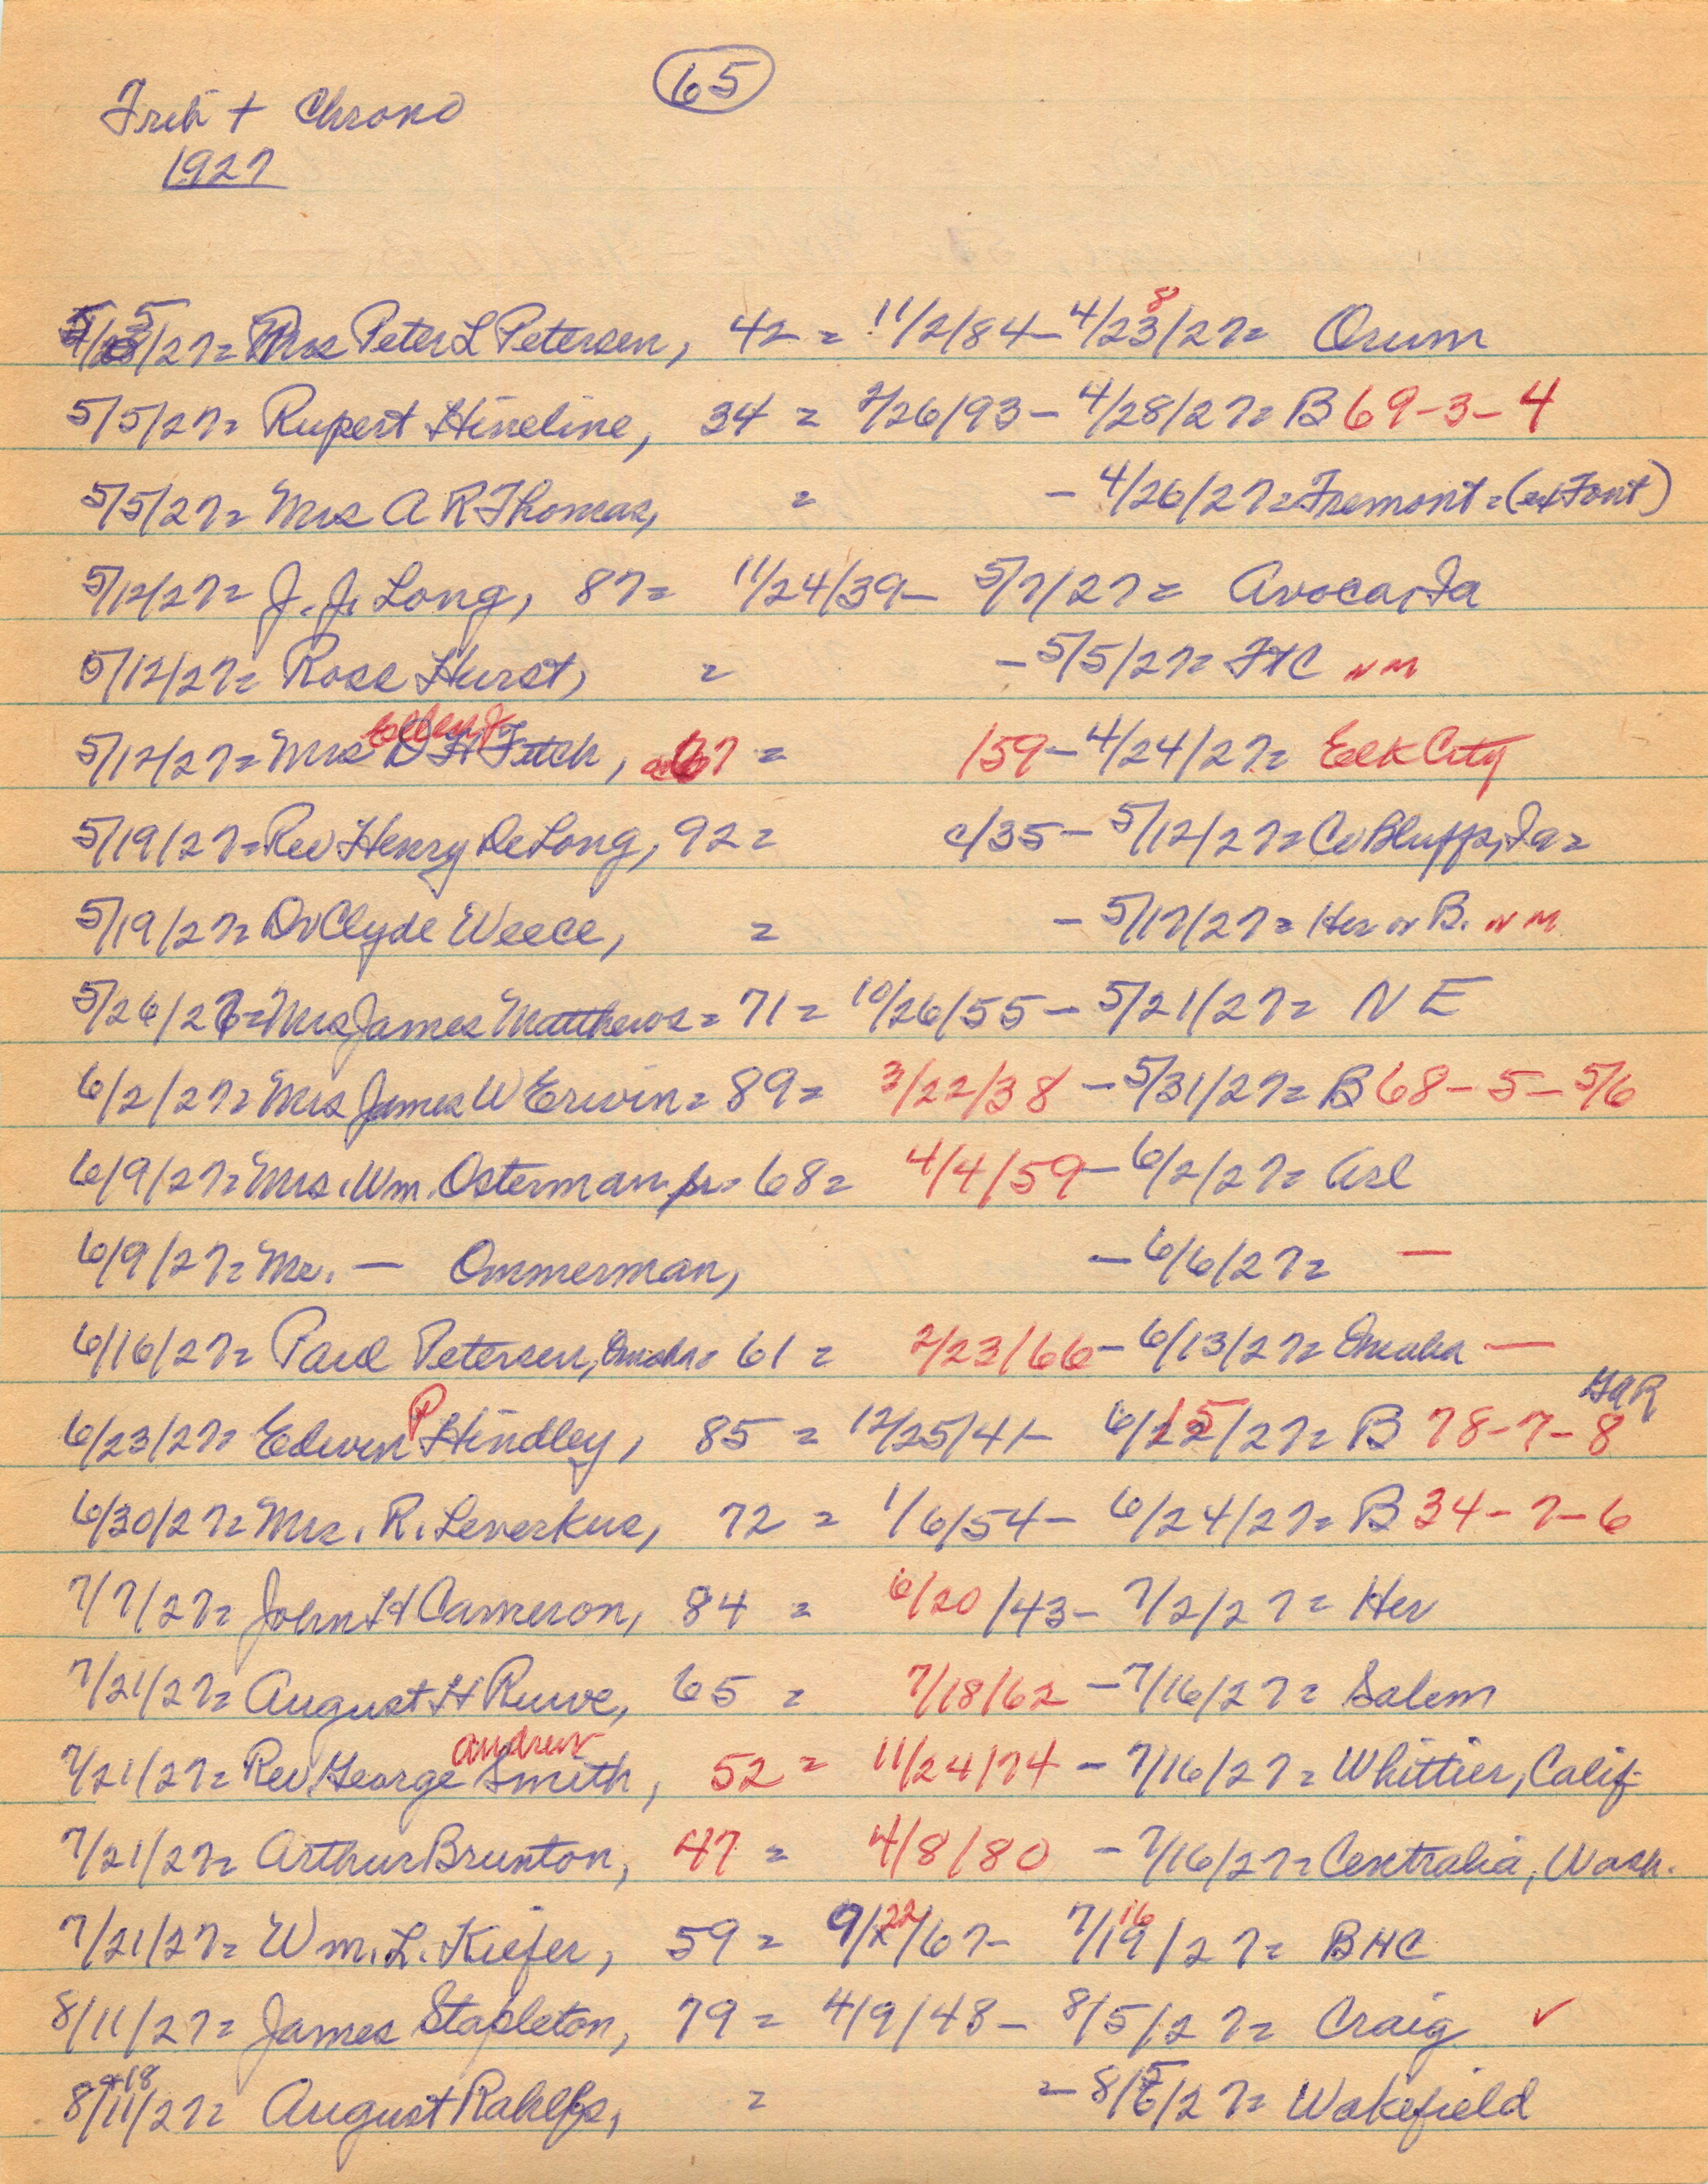 65
Trib + Chrono
1927
5/5/27= Mrs Peter L Petersen, 42 = 11/2/84- 4/28/27= Orum
5/5/27= Rupert Hineline, 34 = 2/26/93- 4/28/27= B 69-3-4
5/5/27= Mrs A R Thomas, = - 4/26/27= Fremont = (ex Font)
5/12/27= J. J. Long, 87= 11/24/39- 5/7/27= Avoca, Ia
5/12/27= Rose Hurst, = - 5/5/27= FtC NM
5/12/27= Mrs D H Fitch, 67 = /59- 4/24/27= Elk City
5/19/27= Rev Henry DeLong, 92= c/35- 5/12/27= Co Bluffs, Ia=
5/19/27= Dr Clyde Weece, = - 5/17/27= Her or B. NM
5/26/27= Mrs James Matthews= 71= 10/26/55- 5/21/27= NE
6/2/27= Mrs James W Erwin= 89= 3/22/38 - 5/31/27= B 68-5-5/6
6/9/27= Mrs. Wm. Osterman sr= 68= 4/4/59- 6/2/27= Arl
6/9/27= Mr. — Ommerman, - 6/6/27= —
6/16/27= Paul Petersen, Omaha= 61 = 2/23/66- 6/13/27= Omaha —
GAR
6/23/27= Edwin P Hindley, 85 = 12/25/41- 6/15/27= B 78-7-8
6/30/27= Mrs. R. Leverkus, 72 = 1/6/54- 6/24/27= B 34-7-6
7/7/27= John H Cameron, 84 = 6/20/43- 7/2/27= Her
7/21/27= August H Ruwe, 65 = 7/18/62 - 7/16/27= Salem
7/21/27= Rev George Andrew Smith, 52= 11/24/74 - 7/16/27= Whittier, Calif
7/21/27= Arthur Brunton, 47 = 4/8/80 - 7/16/27= Centralia, Wash.
7/21/27= Wm. L. Kiefer, 59 = 9/22/67- 7/16/27= BHC
8/11/27= James Stapleton, 79 = 4/9/48- 8/5/27= Craig ✓
8/11+18/27= August Rahlfs, = - 8/5/27= Wakefield